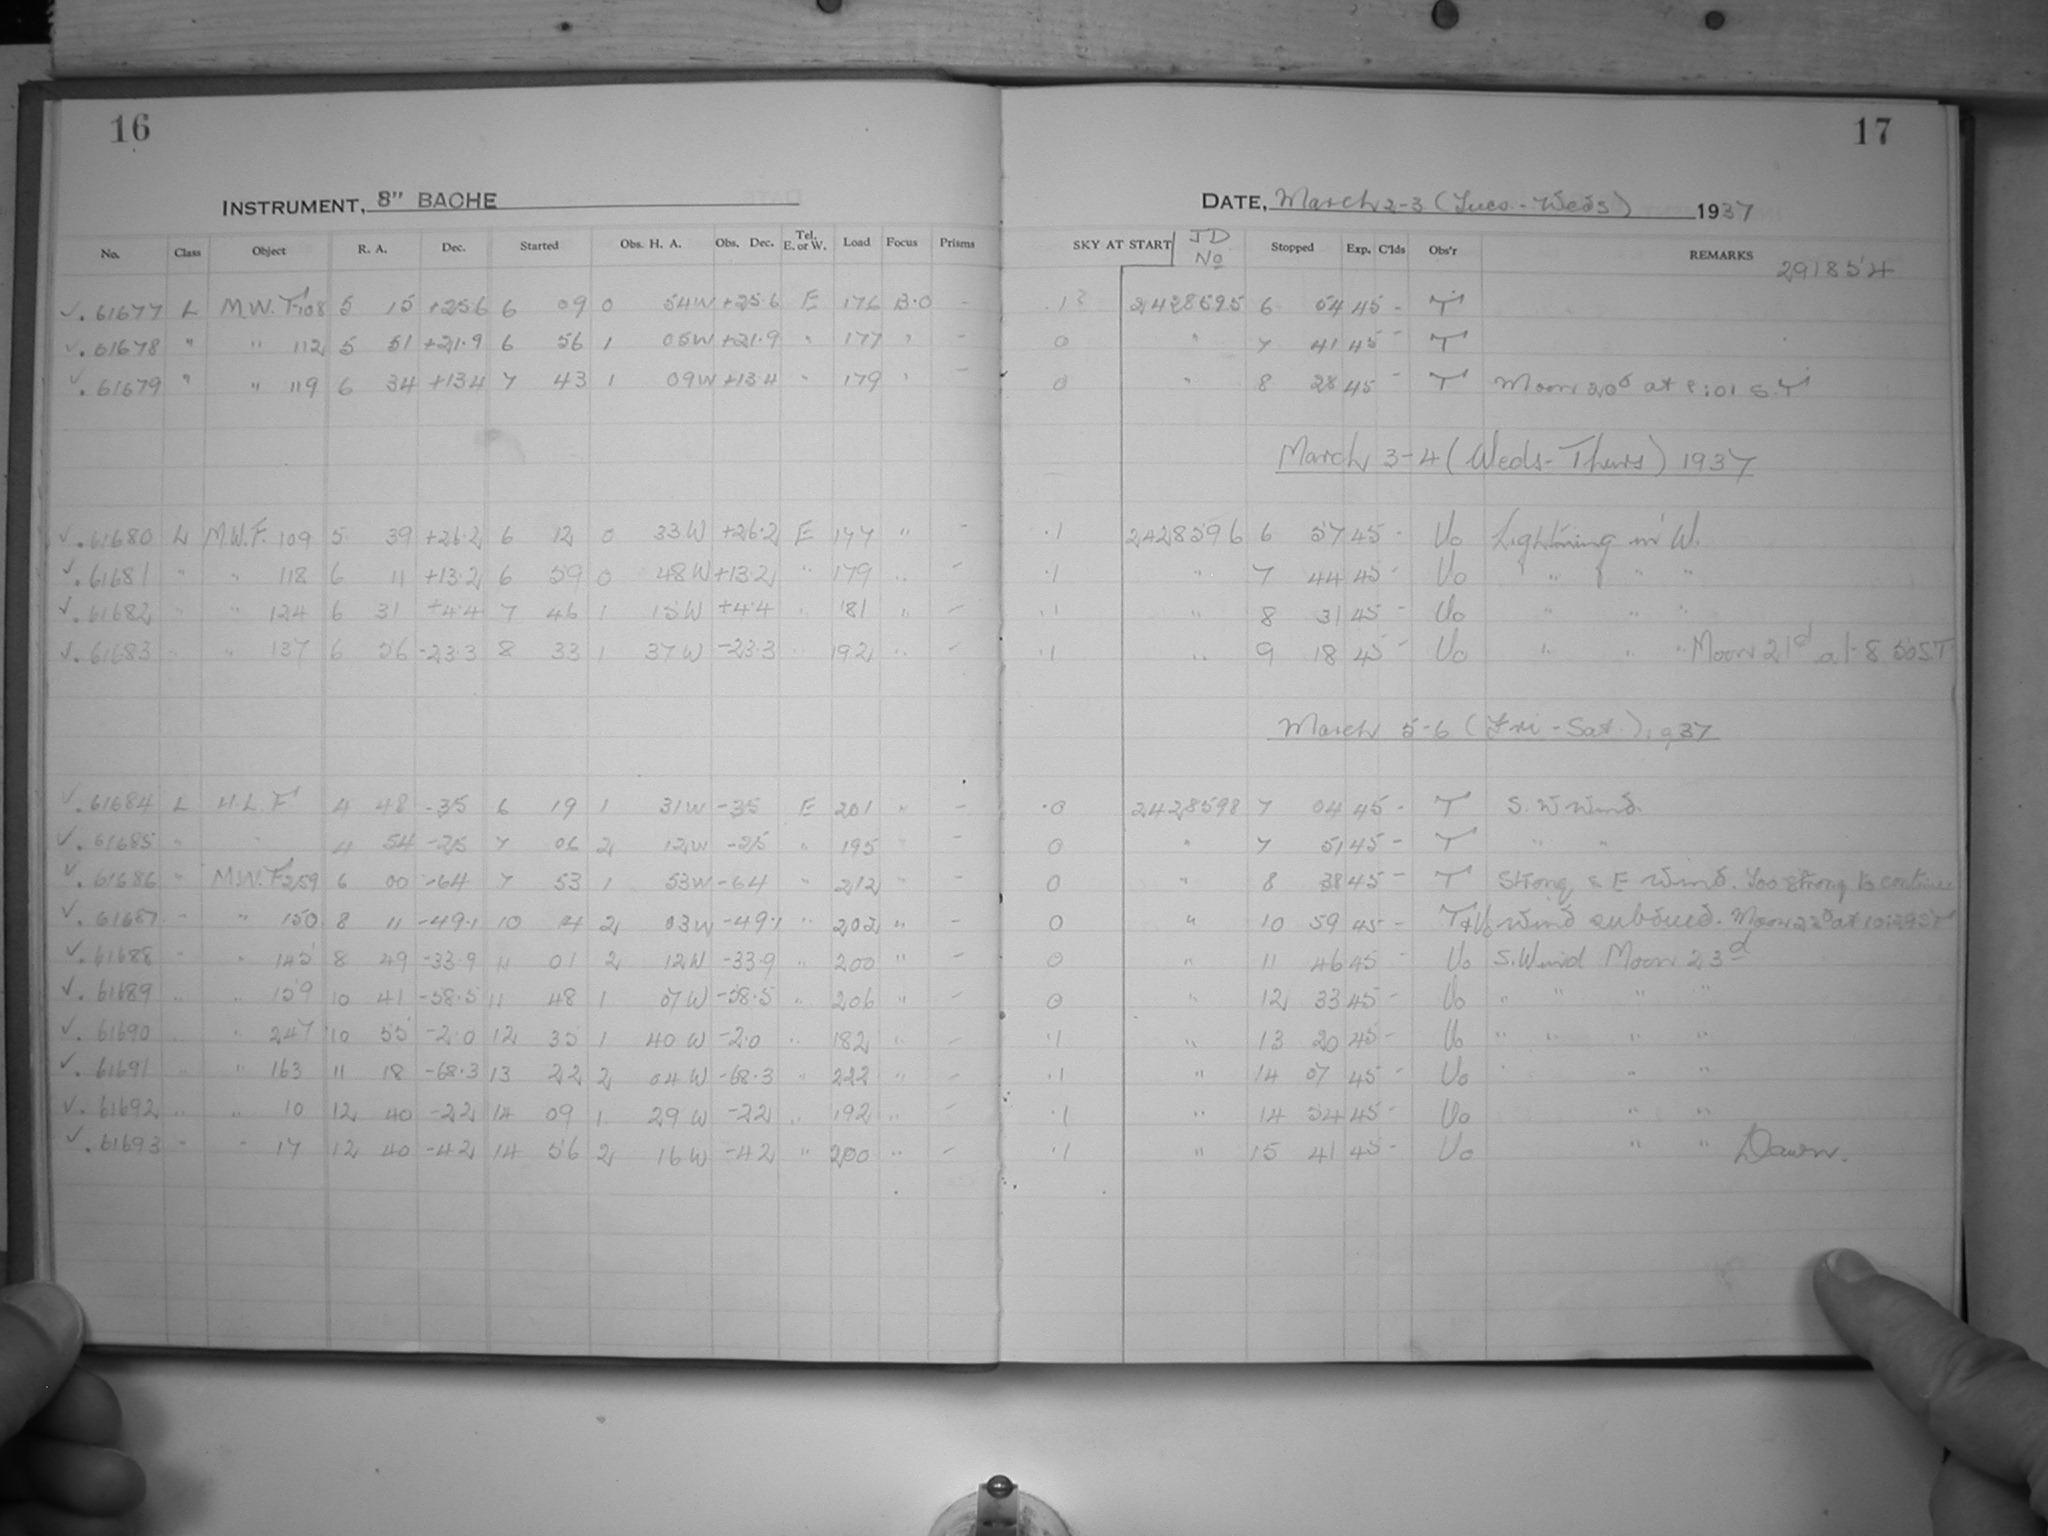 16
INSTRUMENT, 8" BACHE
No. Class Object R. A. Dec. Started Obs. H. A. Obs. Dec. Tel. E. or W. Load Focus Prisms
✓. 61677 L M.W.F. 108 5 15 +25.6 6 09 0 54W +25.6 E 176 B.O -
✓. 61678 " " 112 5 51 +21.9 6 56 1 05W +21.9 " 177 " -
✓. 61679 " " 119 6 34 +13.4 7 43 1 09W +13.4 " 179 " -
✓. 61680 L M.W.F. 109 5 39 +26.2 6 12 0 33W +26.2 E 177 " -
✓. 61681 " " 118 6 11 +13.2 6 59 0 48W +13.2 " 179 " -
✓. 61682 " " 124 6 31 +4.4 7 46 1 15W +4.4 " 181 " -
✓. 61683 " " 137 6 56 -23.3 8 33 1 37W -23.3 " 192 " -
✓. 61684 L H.L.F 4 48 -35 6 19 1 31W -35 E 201 " -
✓. 61685 " " 4 54 -25 7 06 2 12W -25 " 195 " -
✓. 61686 " M.W.F. 259 6 00 -64 7 53 1 53W -64 " 212 " -
✓. 61687 " " 150 8 11 -49.1 10 14 2 03W -49.1 " 202 " -
✓. 61688 " " 145 8 49 -33.9 11 01 2 12W -33.9 " 200 " -
✓. 61689 " " 159 10 41 -58.5 11 48 1 07W -58.5 " 206 " -
✓. 61690 " " 247 10 55 -2.0 12 35 1 40W -2.0 " 182 " -
✓. 61691 " " 163 11 18 -68.3 13 22 2 04W -68.3 " 222 " -
✓. 61692 " " 10 12 40 -22 14 09 1 29W -22 " 192 " -
✓. 61693 " " 17 12 40 -42 14 56 2 16W -42 " 200 " -
17
DATE, March 2-3 (Tues.-Weds) 1937
SKY AT START JD No Stopped Exp. C'lds Obs'r REMARKS
291854
.1? 2428595 6 54 45 - T
0 " 7 41 45 - T
0 " 8 28 45 - T Moon 20d at 8:01 S.T
March 3-4 (Weds-Thurs) 1937
.1 2428596 6 57 45 - Uo Lightning in W.
.1 " 7 44 45 - Uo " " "
.1 " 8 31 45 - Uo " " "
.1 " 9 18 45 - Uo " " " Moon 21d at 8 50 ST
March 5-6 (Fri-Sat.) 1937
.0 2428598 7 04 45 - T S. W wind.
0 " 7 51 45 - T " "
0 " 8 38 45 - T Strong S E wind. Too strong to continue
0 " 10 59 45 - T&Uo wind subdued. Moon 23d at 10:29 ST
0 " 11 46 45 - Uo S. Wind Moon 23d
0 " 12 33 45 - Uo " " " "
.1 " 13 20 45 - Uo " " " "
.1 " 14 07 45 - Uo " " "
.1 " 14 54 45 - Uo " "
.1 " 15 41 45 - Uo " " Dawn.